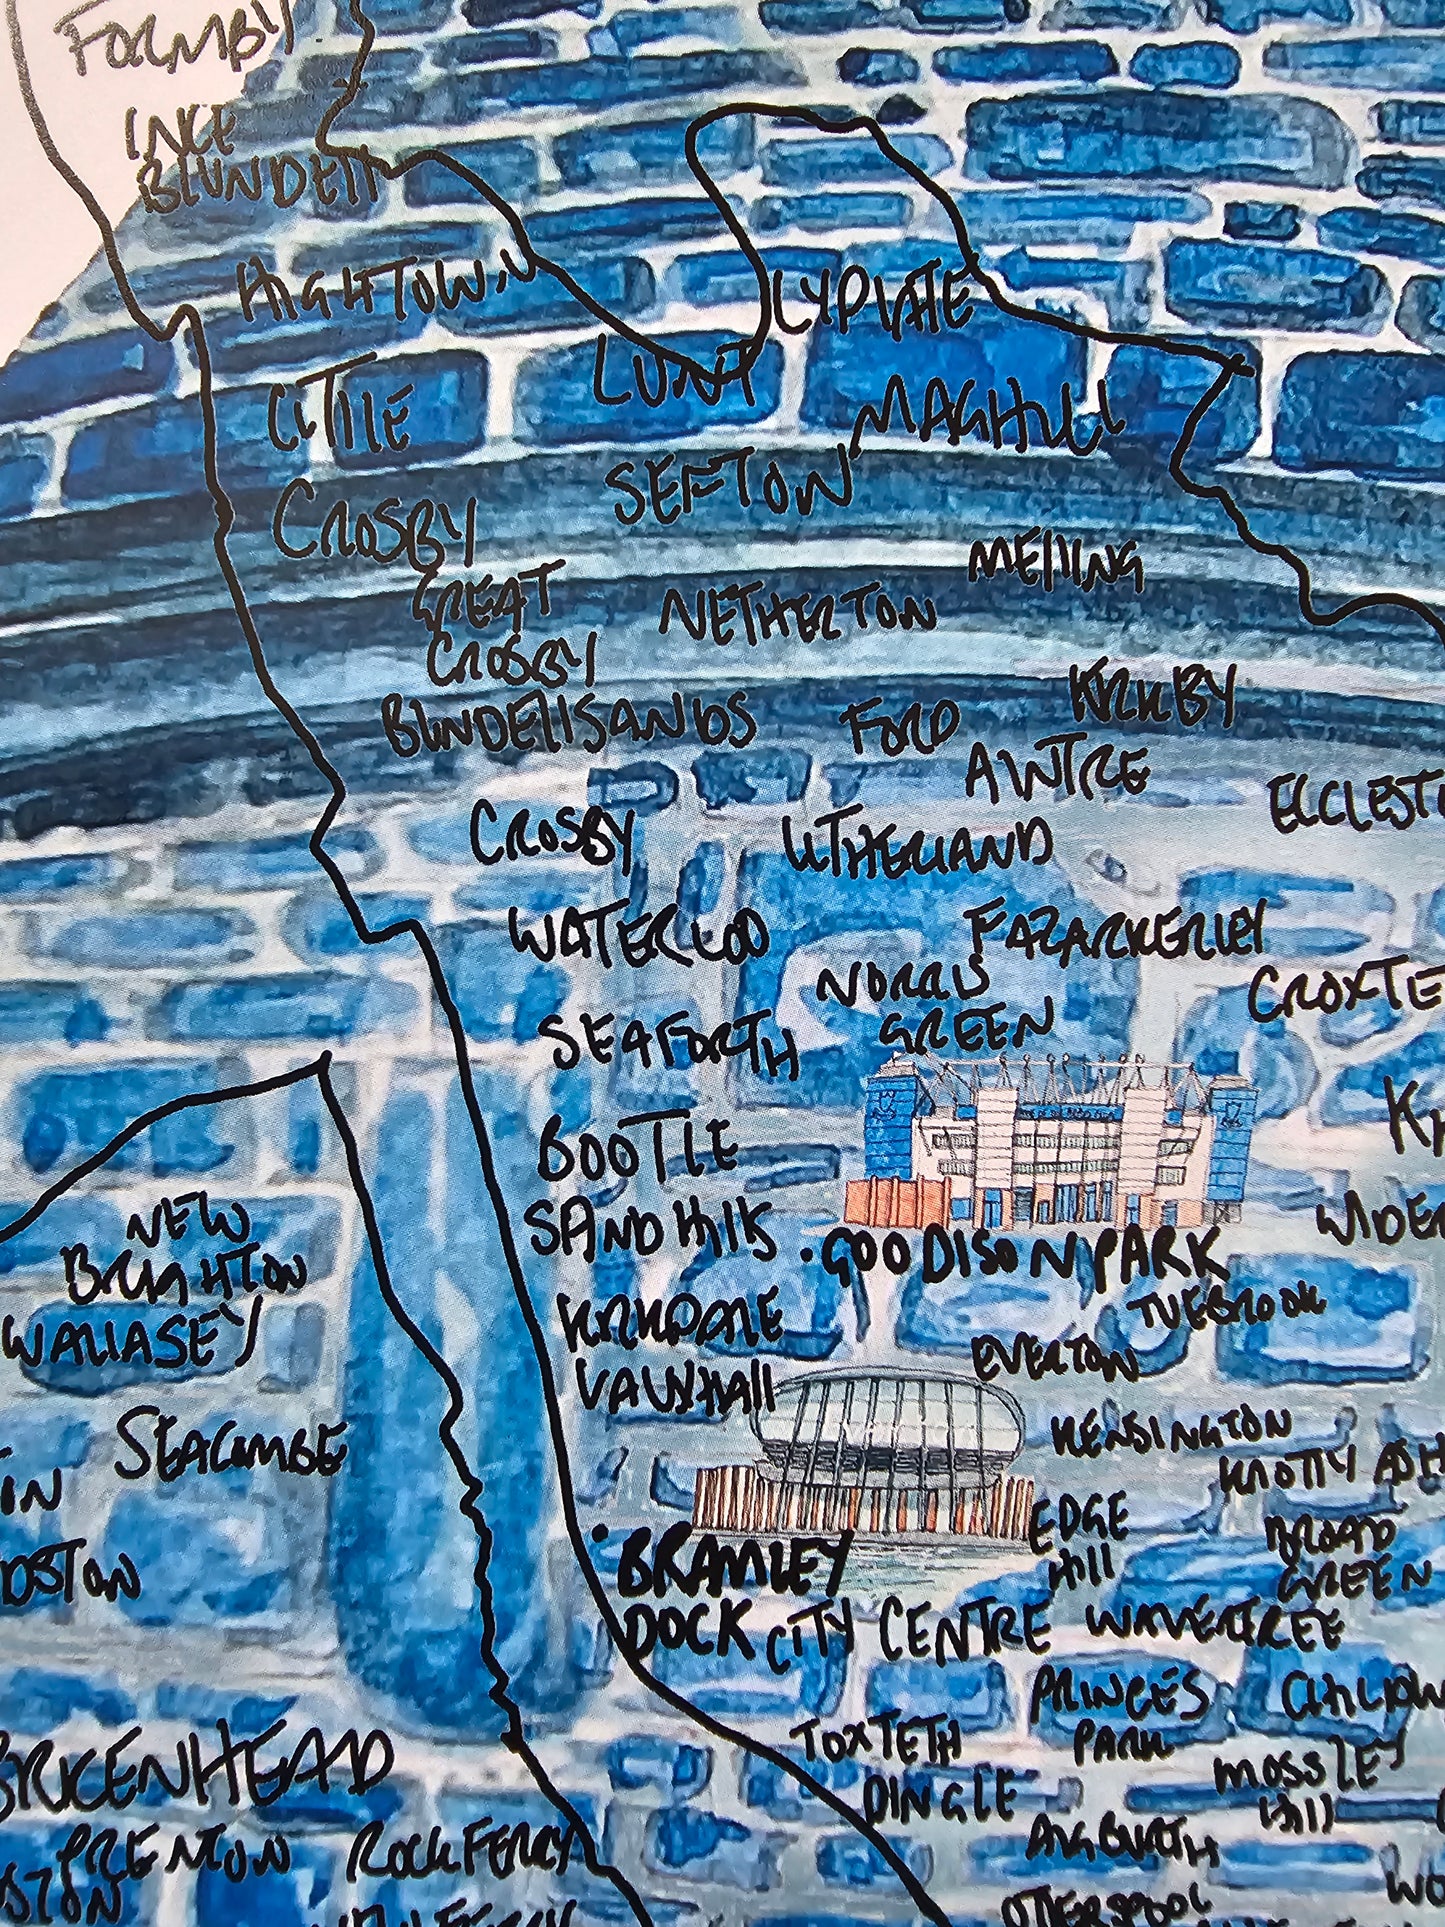 FORMBY
INCE
BLUNDELL
HIGHTOWN
LYDIATE
LUNT
LITTLE
CROSBY
MAGHULL
SEFTON
MELLING
GREAT
CROSBY
NETHERTON
BLUNDELLSANDS
FORD
KIRKBY
AINTREE
ECCLESTO
CROSBY
LITHERLAND
WATERLOO
FAZARKERLEY
NORRIS
GREEN
CROXTE
SEAFORTH
BOOTLE
KN
SANDHILLS
WIDE
NEW
BRIGHTON
WALLASEY
GOODISON PARK
KIRKDALE
TUEBROOK
VAUXHALL
EVERTON
SEACOMBE
KENSINGTON
KNOTTY ASH
IN
EDGE
HILL
BROAD
GREEN
DSTON
BRAMLEY
DOCK
CITY CENTRE
WAVERTREE
PRINCES
PARK
CHILDW
TOXTETH
MOSSLEY
HILL
BIRKENHEAD
DINGLE
AIGBURTH
PRENTON
ROCK FERRY
STON
WO
OTTERSPOOL